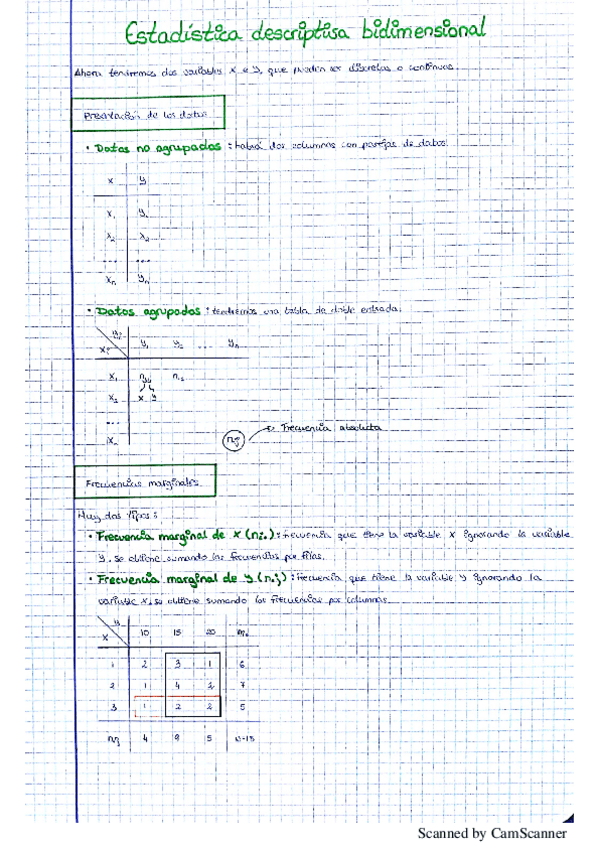 Estadística descriptiva bidimensional
Ahora tendremos dos variables x e y, que pueden ser discretas o continuas
Presentación de los datos
· Datos no agrupados : habrá dos columnas con parejas de datos
x y
x₁ y₁
x₂ y₂
... ...
xₙ yₙ
· Datos agrupados : tendremos una tabla de doble entrada.
yⱼ
xᵢ y₁ y₂ ... yₙ
x₁ n₁₁ n₁₂
x₂ x y
...
xₙ
nᵢⱼ → Frecuencia absoluta
Frecuencias marginales
Hay dos tipos :
· Frecuencia marginal de x (nᵢ.) : frecuencia que tiene la variable x ignorando la variable
y. se obtiene sumando las frecuencias por filas.
· Frecuencia marginal de y (n.ⱼ) : frecuencia que tiene la variable y ignorando la
variable x. se obtiene sumando las frecuencias por columnas
y
x 10 15 20 nᵢ.
1 2 3 1 6
2 1 4 2 7
3 1 2 2 5
nⱼ 4 9 5
Scanned by CamScanner